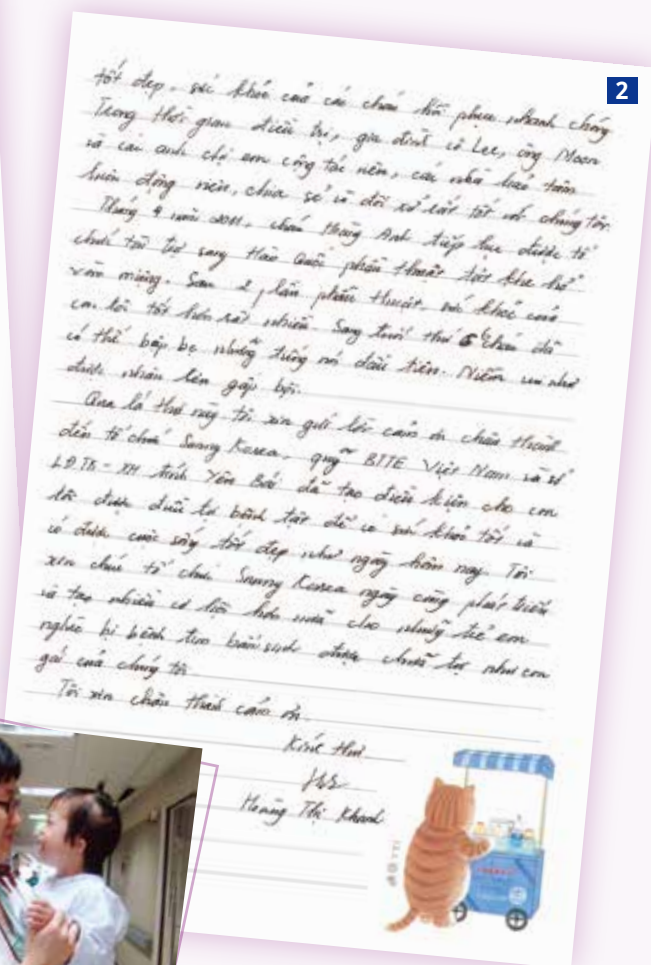 2
tốt đẹp, sức khỏe của các cháu hồi phục nhanh chóng
Trong thời gian điều trị, gia đình cô Lee, ông Moon
và các anh chị em công tác viên, các nhà hảo tâm
luôn động viên, chia sẻ và đối xử rất tốt với chúng tôi.
Tháng 4 năm 2011, cháu Hoàng Anh tiếp tục được tổ
chức tài trợ sang Hàn Quốc phẫu thuật tật khe hở
vòm miệng. Sau 2 lần phẫu thuật, sức khỏe của
con tôi tốt hơn rất nhiều. Sang tuổi thứ 6 cháu đã
có thể bập bẹ những tiếng nói đầu tiên. Niềm vui như
được nhân lên gấp bội.
Qua lá thư này tôi xin gửi lời cảm ơn chân thành
đến tổ chức Sunny Korea, quỹ BITE Việt Nam và sở
LĐTB-XH tỉnh Yên Bái đã tạo điều kiện cho con
tôi được điều trị bệnh tật để có sức khỏe tốt và
có được cuộc sống tốt đẹp như ngày hôm nay. Tôi
xin chúc tổ chức Sunny Korea ngày càng phát triển
và tạo nhiều cơ hội hơn nữa cho những trẻ em
nghèo bị bệnh tim bẩm sinh được chữa trị như con
gái của chúng tôi
Tôi xin chân thành cảm ơn.
Kính thư
Hoàng Thị Khanh